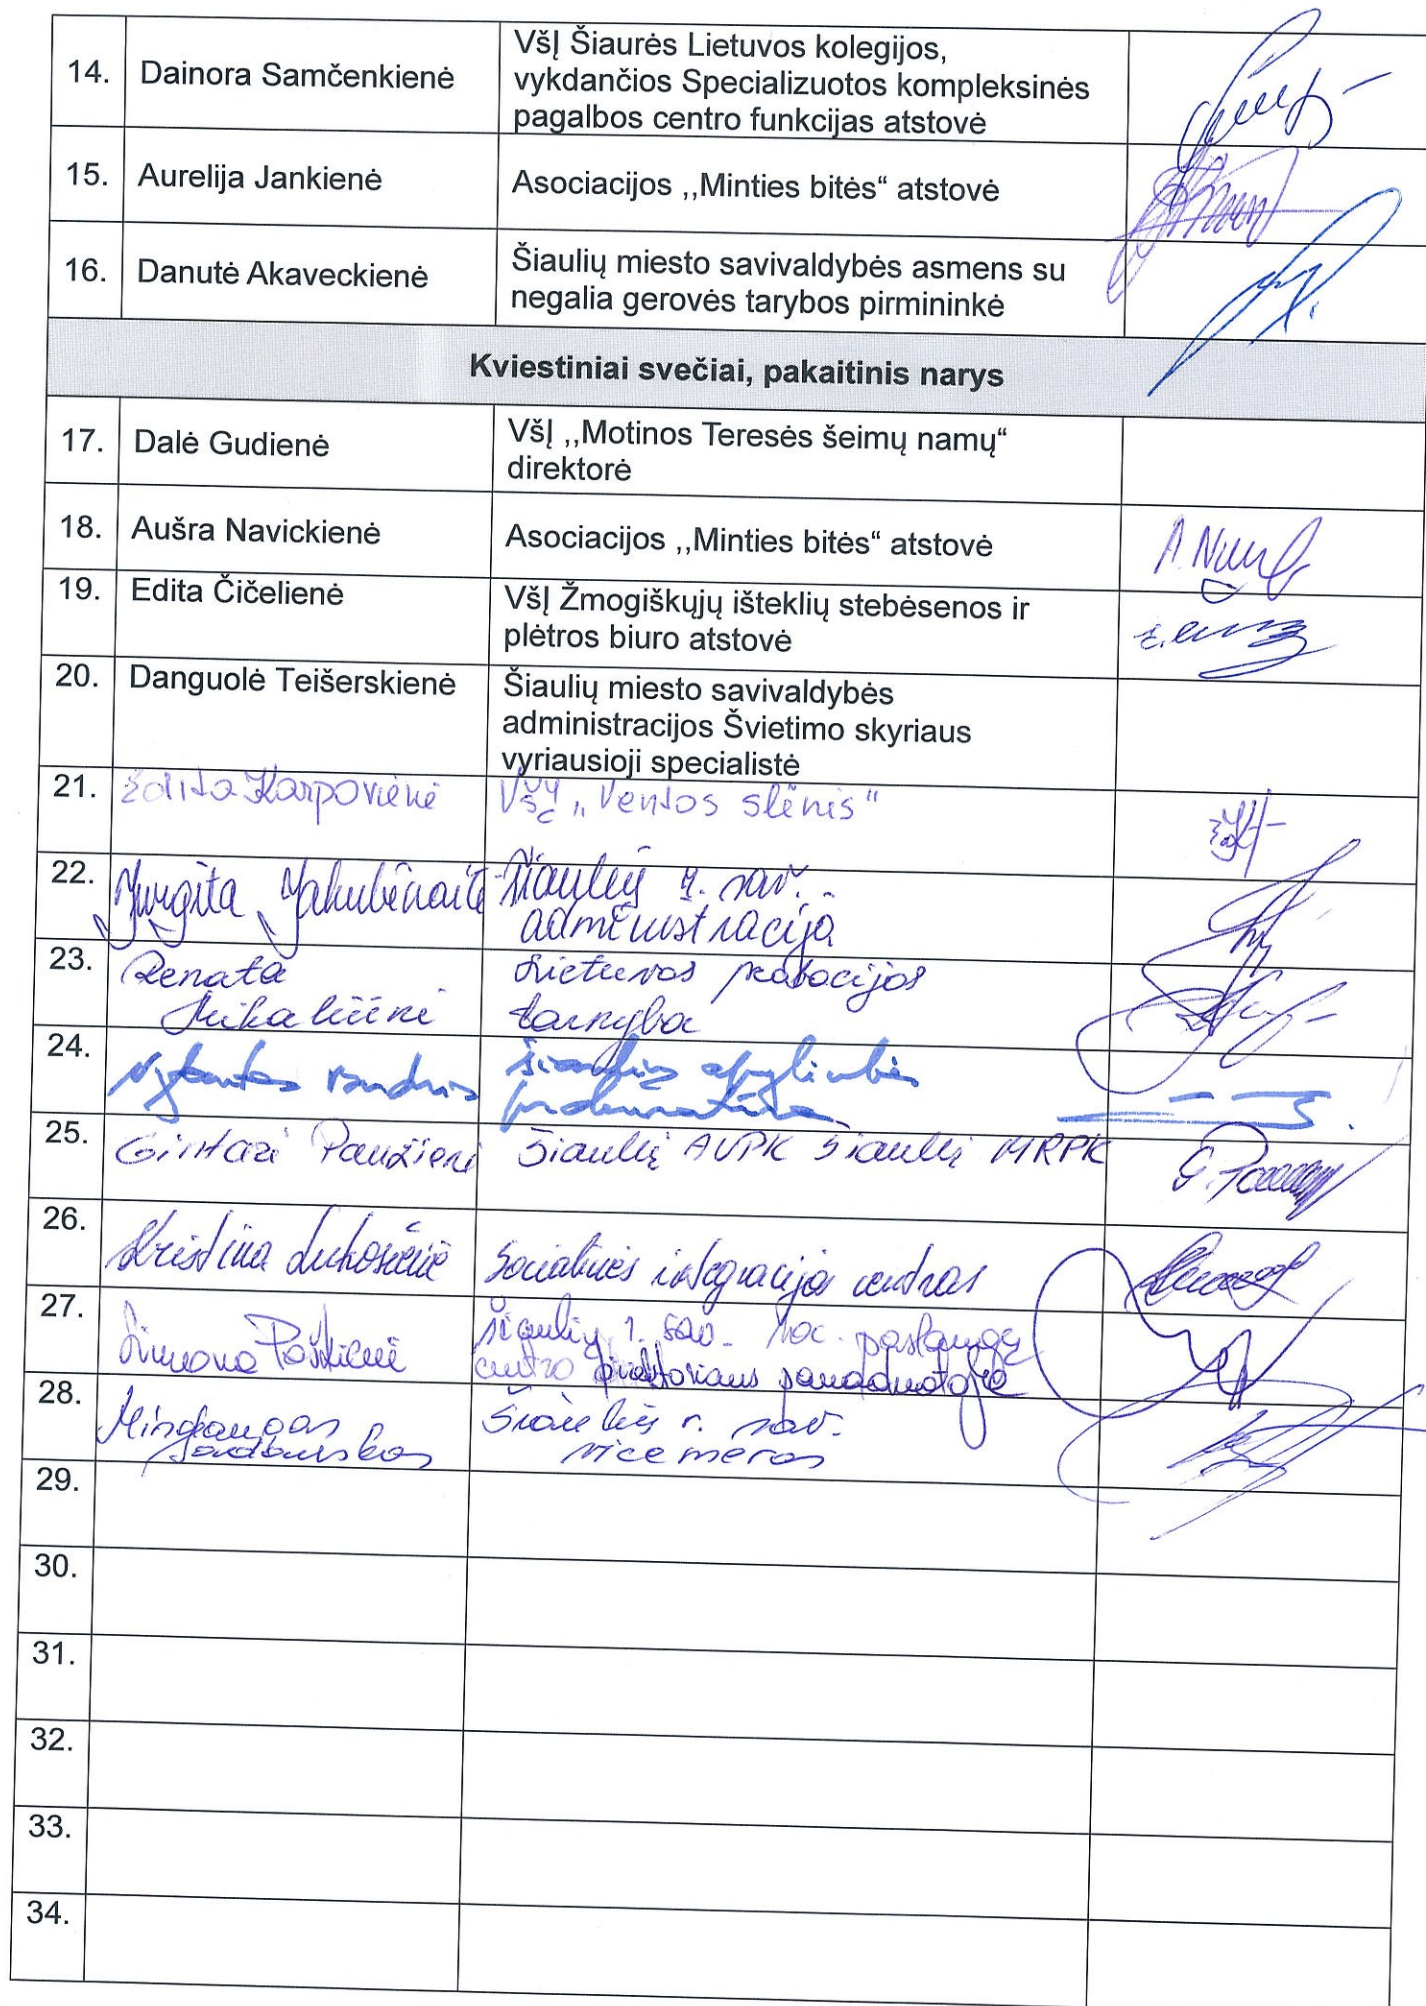 14. Dainora Samčenkienė VšĮ Šiaurės Lietuvos kolegijos,
vykdančios Specializuotos kompleksinės
pagalbos centro funkcijas atstovė
15. Aurelija Jankienė Asociacijos ,,Minties bitės“ atstovė
16. Danutė Akaveckienė Šiaulių miesto savivaldybės asmens su
negalia gerovės tarybos pirmininkė
Kviestiniai svečiai, pakaitinis narys
17. Dalė Gudienė VšĮ ,,Motinos Teresės šeimų namų“
direktorė
18. Aušra Navickienė Asociacijos ,,Minties bitės“ atstovė
19. Edita Čičelienė VšĮ Žmogiškųjų išteklių stebėsenos ir
plėtros biuro atstovė
20. Danguolė Teišerskienė Šiaulių miesto savivaldybės
administracijos Švietimo skyriaus
vyriausioji specialistė
21. Edita Karpovienė "Ventos slėnis"
22. Jurgita Jakubėnaitė Šiaulių r. sav.
administracija
23. Renata Lietuvos probacijos
tarnyba
24. Šiaulių apylinkės
prokuratūra
25. Gintarė Paužienė Šiaulių AVPK Šiaulių MRPK
26. Kristina Lukošienė Socialinės integracijos centras
27. Simona Šiaulių r. sav. soc. paslaugų
centro direktoriaus pavaduotoja
28. Mindaugas Šiaulių r. sav.
vicemeras
29.
30.
31.
32.
33.
34.